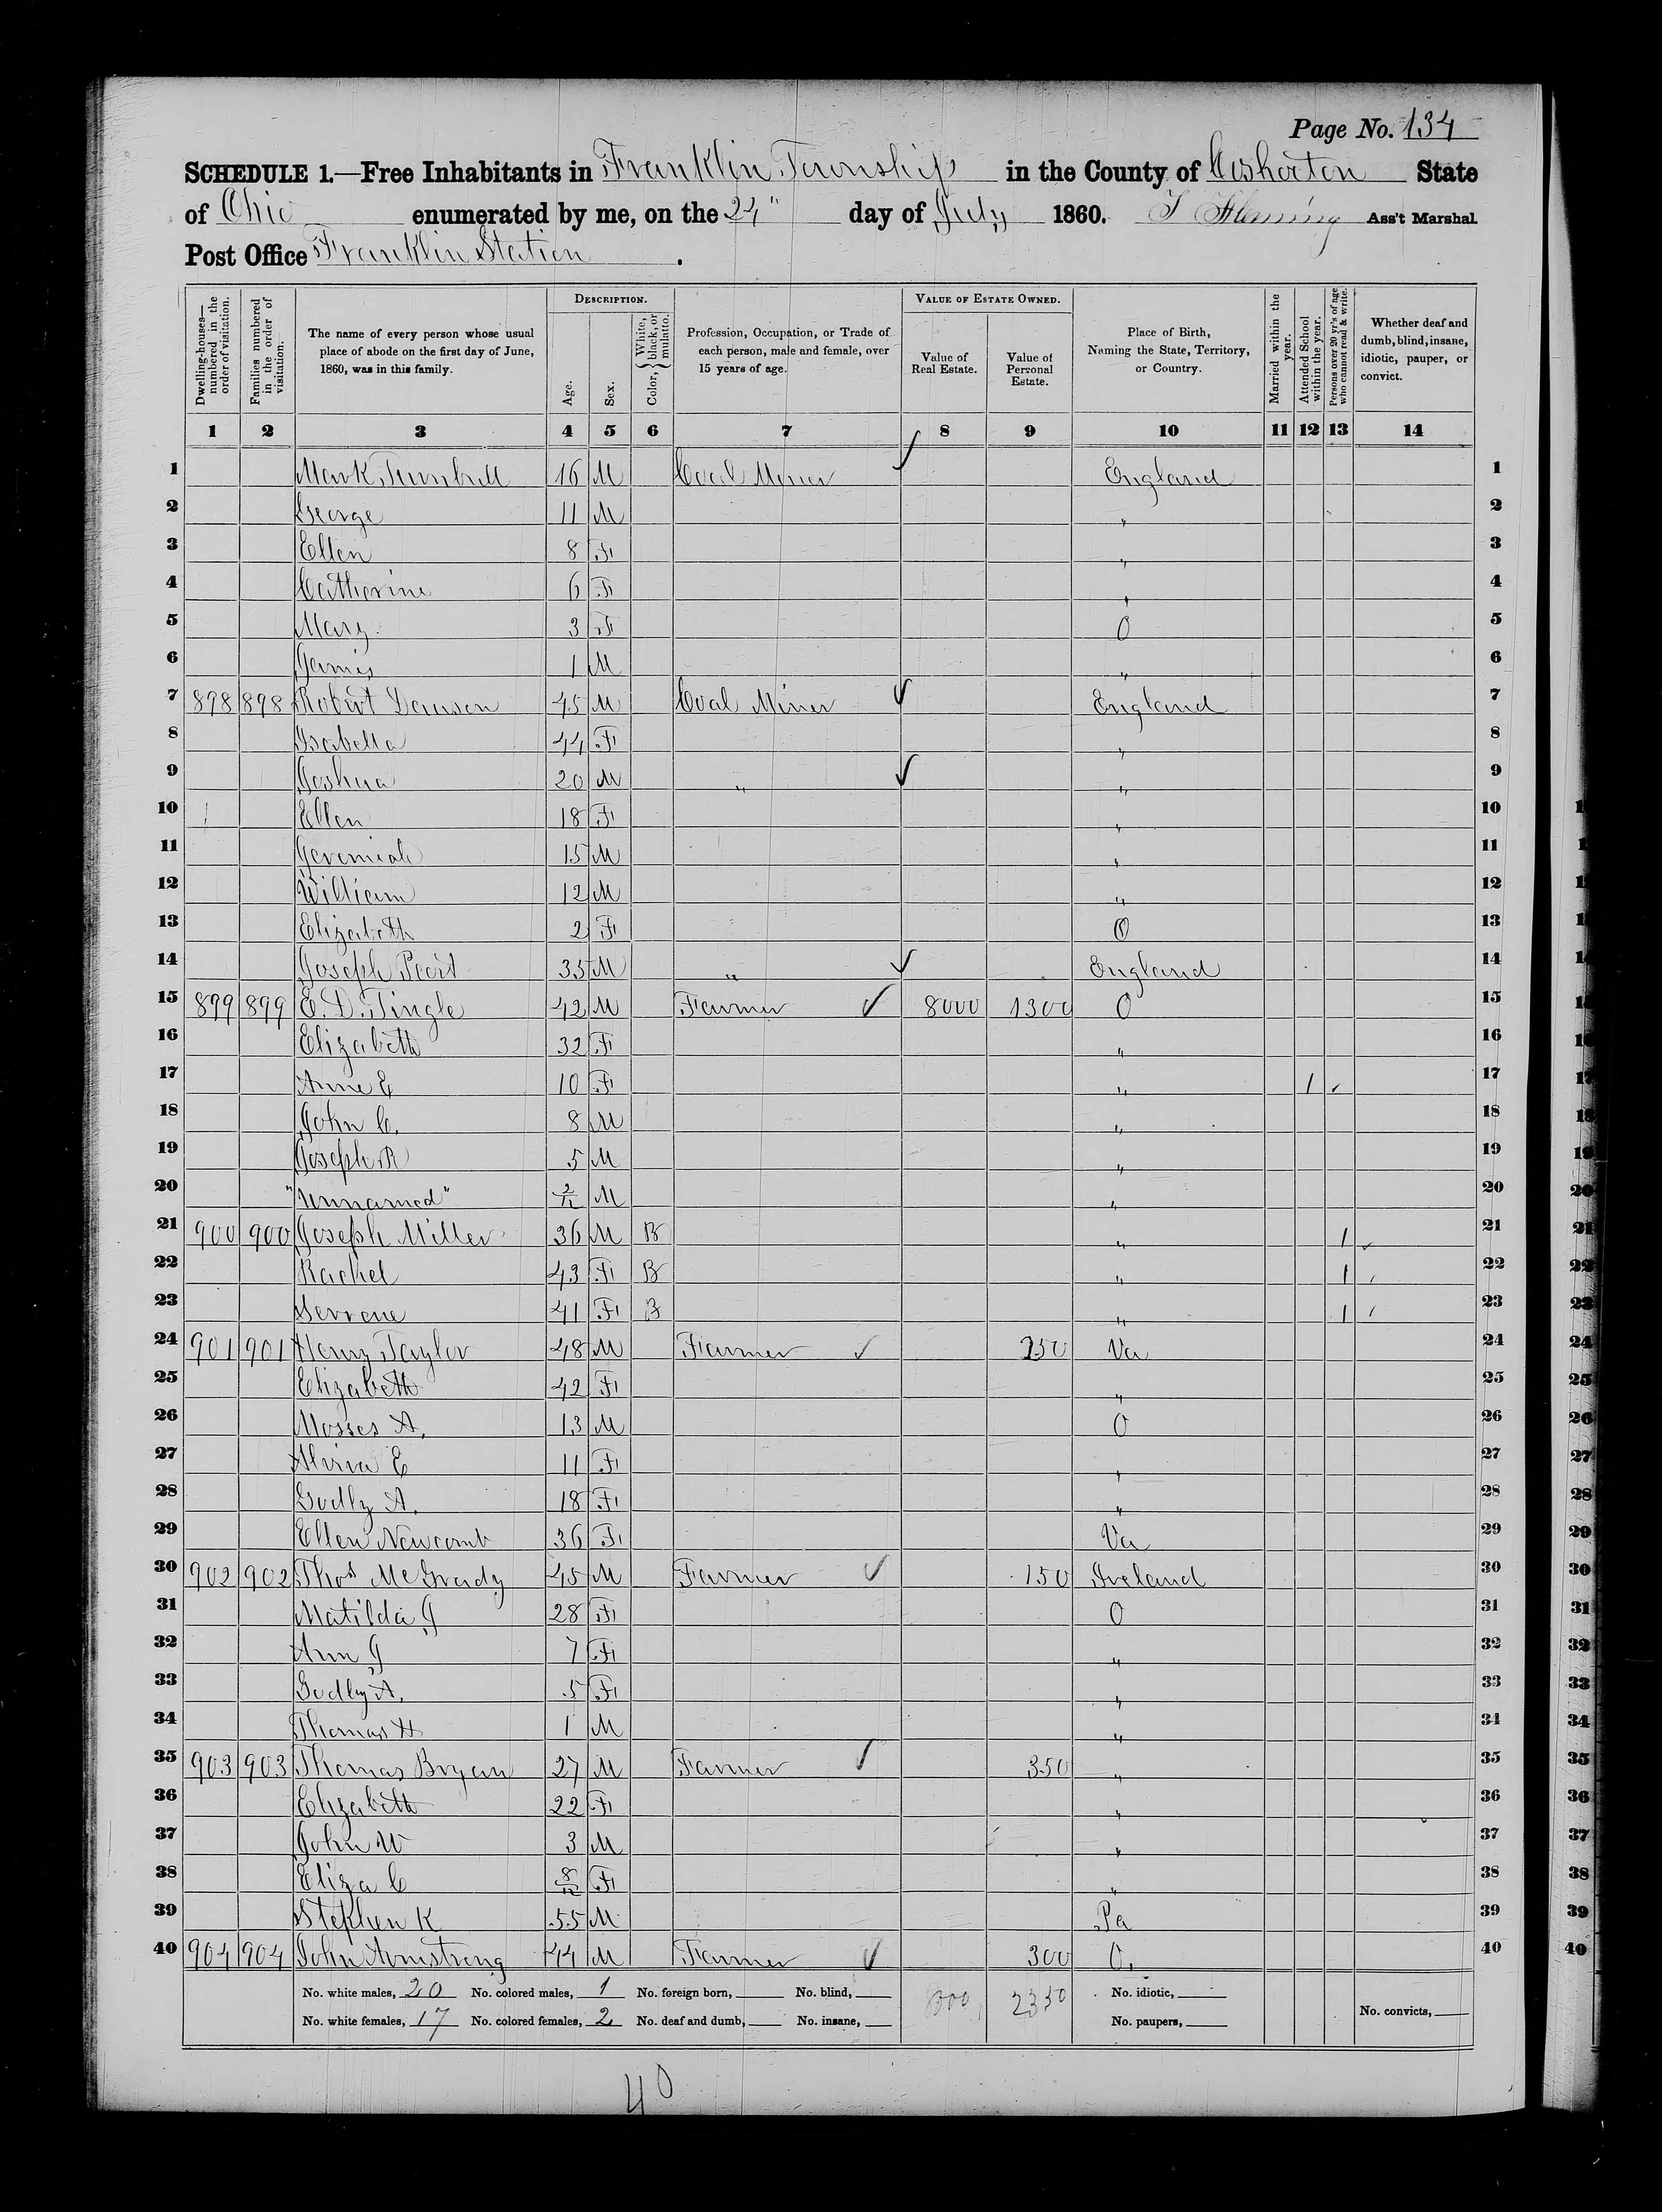 Page No. 134
SCHEDULE 1.—Free Inhabitants in Franklin Township in the County of Coshocton State
of Ohio enumerated by me, on the 24" day of July 1860. Fleming Ass't Marshal
Post Office Franklin Station .
Dwelling-houses—numbered in the order of visitation.
Families numbered in the order of visitation.
The name of every person whose usual place of abode on the first day of June, 1860, was in this family.
DESCRIPTION.
Age.
Sex.
Color, { White, black, or mulatto.
Profession, Occupation, or Trade of each person, male and female, over 15 years of age.
VALUE OF ESTATE OWNED.
Value of Real Estate.
Value of Personal Estate.
Place of Birth, Naming the State, Territory, or Country.
Married within the year.
Attended School within the year.
Persons over 20 yr's of age who cannot read & write.
Whether deaf and dumb, blind, insane, idiotic, pauper, or convict.
1 2 3 4 5 6 7 8 9 10 11 12 13 14
1 Mark Turnbull 16 M Coal Miner ✓ England 1
2 George 11 M " 2
3 Ellen 8 F " 3
4 Catherine 6 F " 4
5 Mary 3 F O 5
6 James 1 M " 6
7 898 898 Robert Dawson 45 M Coal Miner ✓ England 7
8 Isabella 44 F " 8
9 Joshua 20 M " ✓ " 9
10 Ellen 18 F " 10
11 Jeremiah 15 M " 11
12 William 12 M " 12
13 Elizabeth 2 F O 13
14 Joseph 35 M " ✓ England 14
15 899 899 E. D. Tingle 42 M Farmer ✓ 8000 1300 O 15
16 Elizabeth 32 F " 16
17 Anne E 10 F " 1 ✓ 17
18 John C. 8 M " 18
19 Joseph R 5 M " 19
20 "Unnamed" 2/12 M " 20
21 900 900 Joseph Miller 36 M B " 1 ✓ 21
22 Rachel 43 F B " 1 22
23 41 F B " 1 23
24 901 901 Henry Taylor 48 M Farmer ✓ 250 Va 24
25 Elizabeth 42 F " 25
26 Mosses A. 13 M O 26
27 E 11 F " 27
28 Godly A. 18 F " 28
29 Ellen Newcomb 36 F Va 29
30 902 902 Thos McGrady 45 M Farmer ✓ 150 Ireland 30
31 Matilda J 28 F O 31
32 Ann J 7 F " 32
33 Godly A. 5 F " 33
34 Thomas H 1 M " 34
35 903 903 Thomas Bryan 27 M Farmer ✓ 350 " 35
36 Elizabeth 22 F " 36
37 John W 3 M " 37
38 Eliza C 8/12 F " 38
39 Stephen K 55 M Pa 39
40 904 904 John Armstrong 44 M Farmer ✓ 300 O. 40
No. white males, 20 No. colored males, 1 No. foreign born, No. blind, 8000 2350 No. idiotic,
No. white females, 17 No. colored females, 2 No. deaf and dumb, No. insane, No. paupers, No. convicts,
40